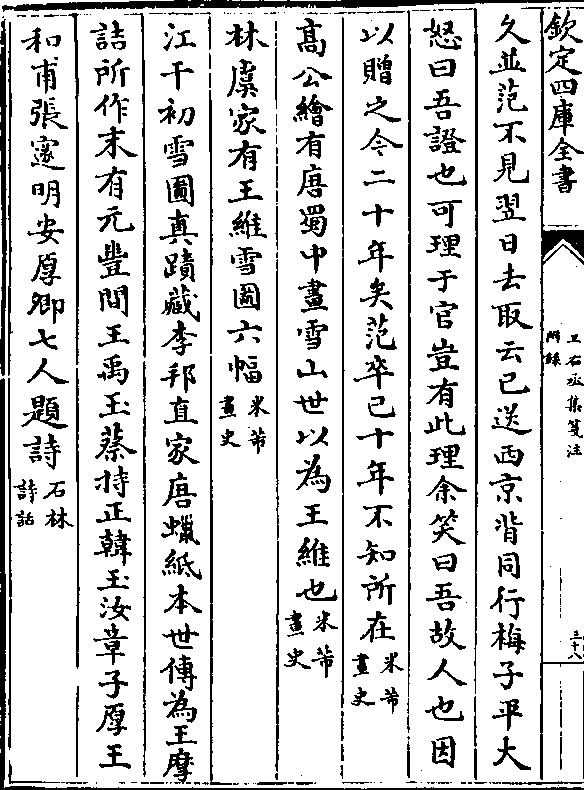 欽定四庫全書
王右丞集箋注
附錄
三十八
久並范不見翌日去取云已送西京背同行梅子平大
怒曰吾證也可理于官豈有此理余笑曰吾故人也因
以贈之今二十年矣范卒已十年不知所在米芾畫史
高公繪有唐蜀中畫雪山世以為王維也米芾畫史
林虞家有王維雪圖六幅米芾畫史
江干初雪圖真蹟藏李邦直家唐蠟紙本世傳為王摩
詰所作末有元豐間王禹玉蔡持正韓玉汝章子厚王
和甫張邃明安厚卿七人題詩石林詩話